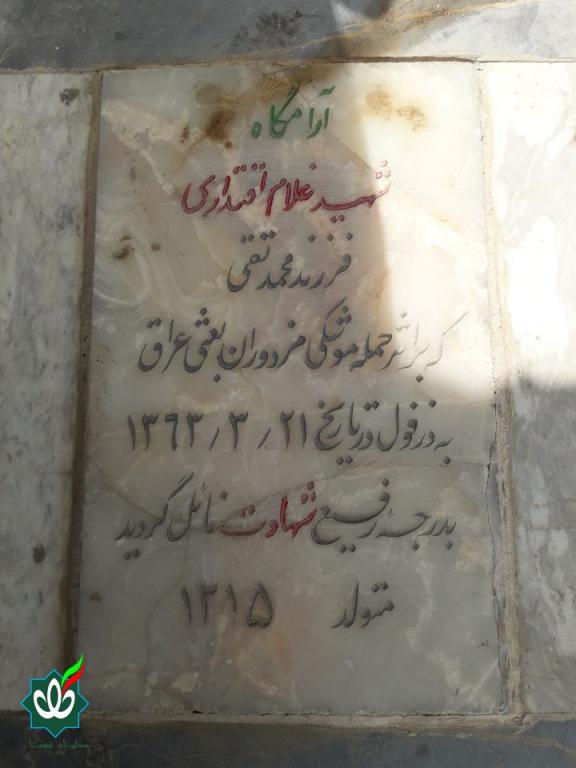 آرامگاه
شهید غلام اقتداری
فرزند محمد تقی
که براثر حمله موشکی مزدوران بعثی عراق
به دزفول در تاریخ ۲۱ / ۳ / ۱۳۶۳
بدرجه رفیع شهادت نائل گردید
متولد ۱۳۱۵